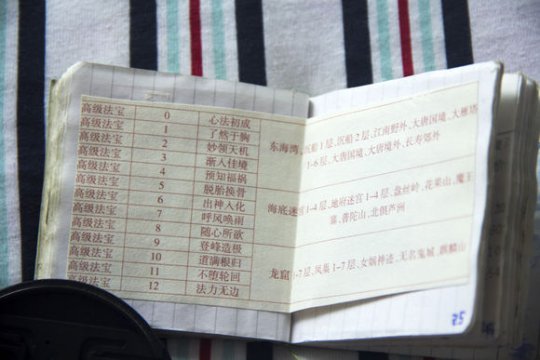 高级法宝 0 心法初成
高级法宝 1 了然于胸
高级法宝 2 妙领天机
高级法宝 3 渐入佳境
高级法宝 4 预知福祸
高级法宝 5 脱胎换骨
高级法宝 6 出神入化
高级法宝 7 呼风唤雨
高级法宝 8 随心所欲
高级法宝 9 登峰造极
高级法宝 10 道满根归
高级法宝 11 不堕轮回
高级法宝 12 法力无边
东海湾、沉船1层、沉船2层、江南野外、大唐国境、大雁塔
1-6层、大唐国境、大唐境外、长寿郊外
海底迷宫1-4层、地府迷宫1-4层、盘丝岭、花果山、魔王
寨、普陀山、北俱芦洲
龙窟1-7层、凤巢1-7层、女娲神迹、无名鬼城、麒麟山